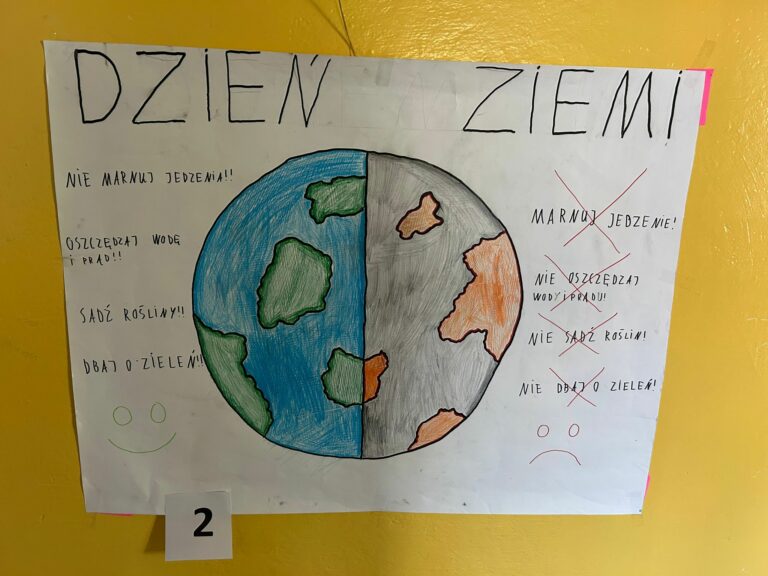 DZIEŃ ZIEMI
NIE MARNUJ JEDZENIA!!
OSZCZĘDZAJ WODĘ
I PRĄD!!
SADŹ ROŚLINY!!
DBAJ O ZIELEŃ!!
MARNUJ JEDZENIE!
NIE OSZCZĘDZAJ
WODY I PRĄDU!
NIE SADŹ ROŚLIN!
NIE DBAJ O ZIELEŃ!
2